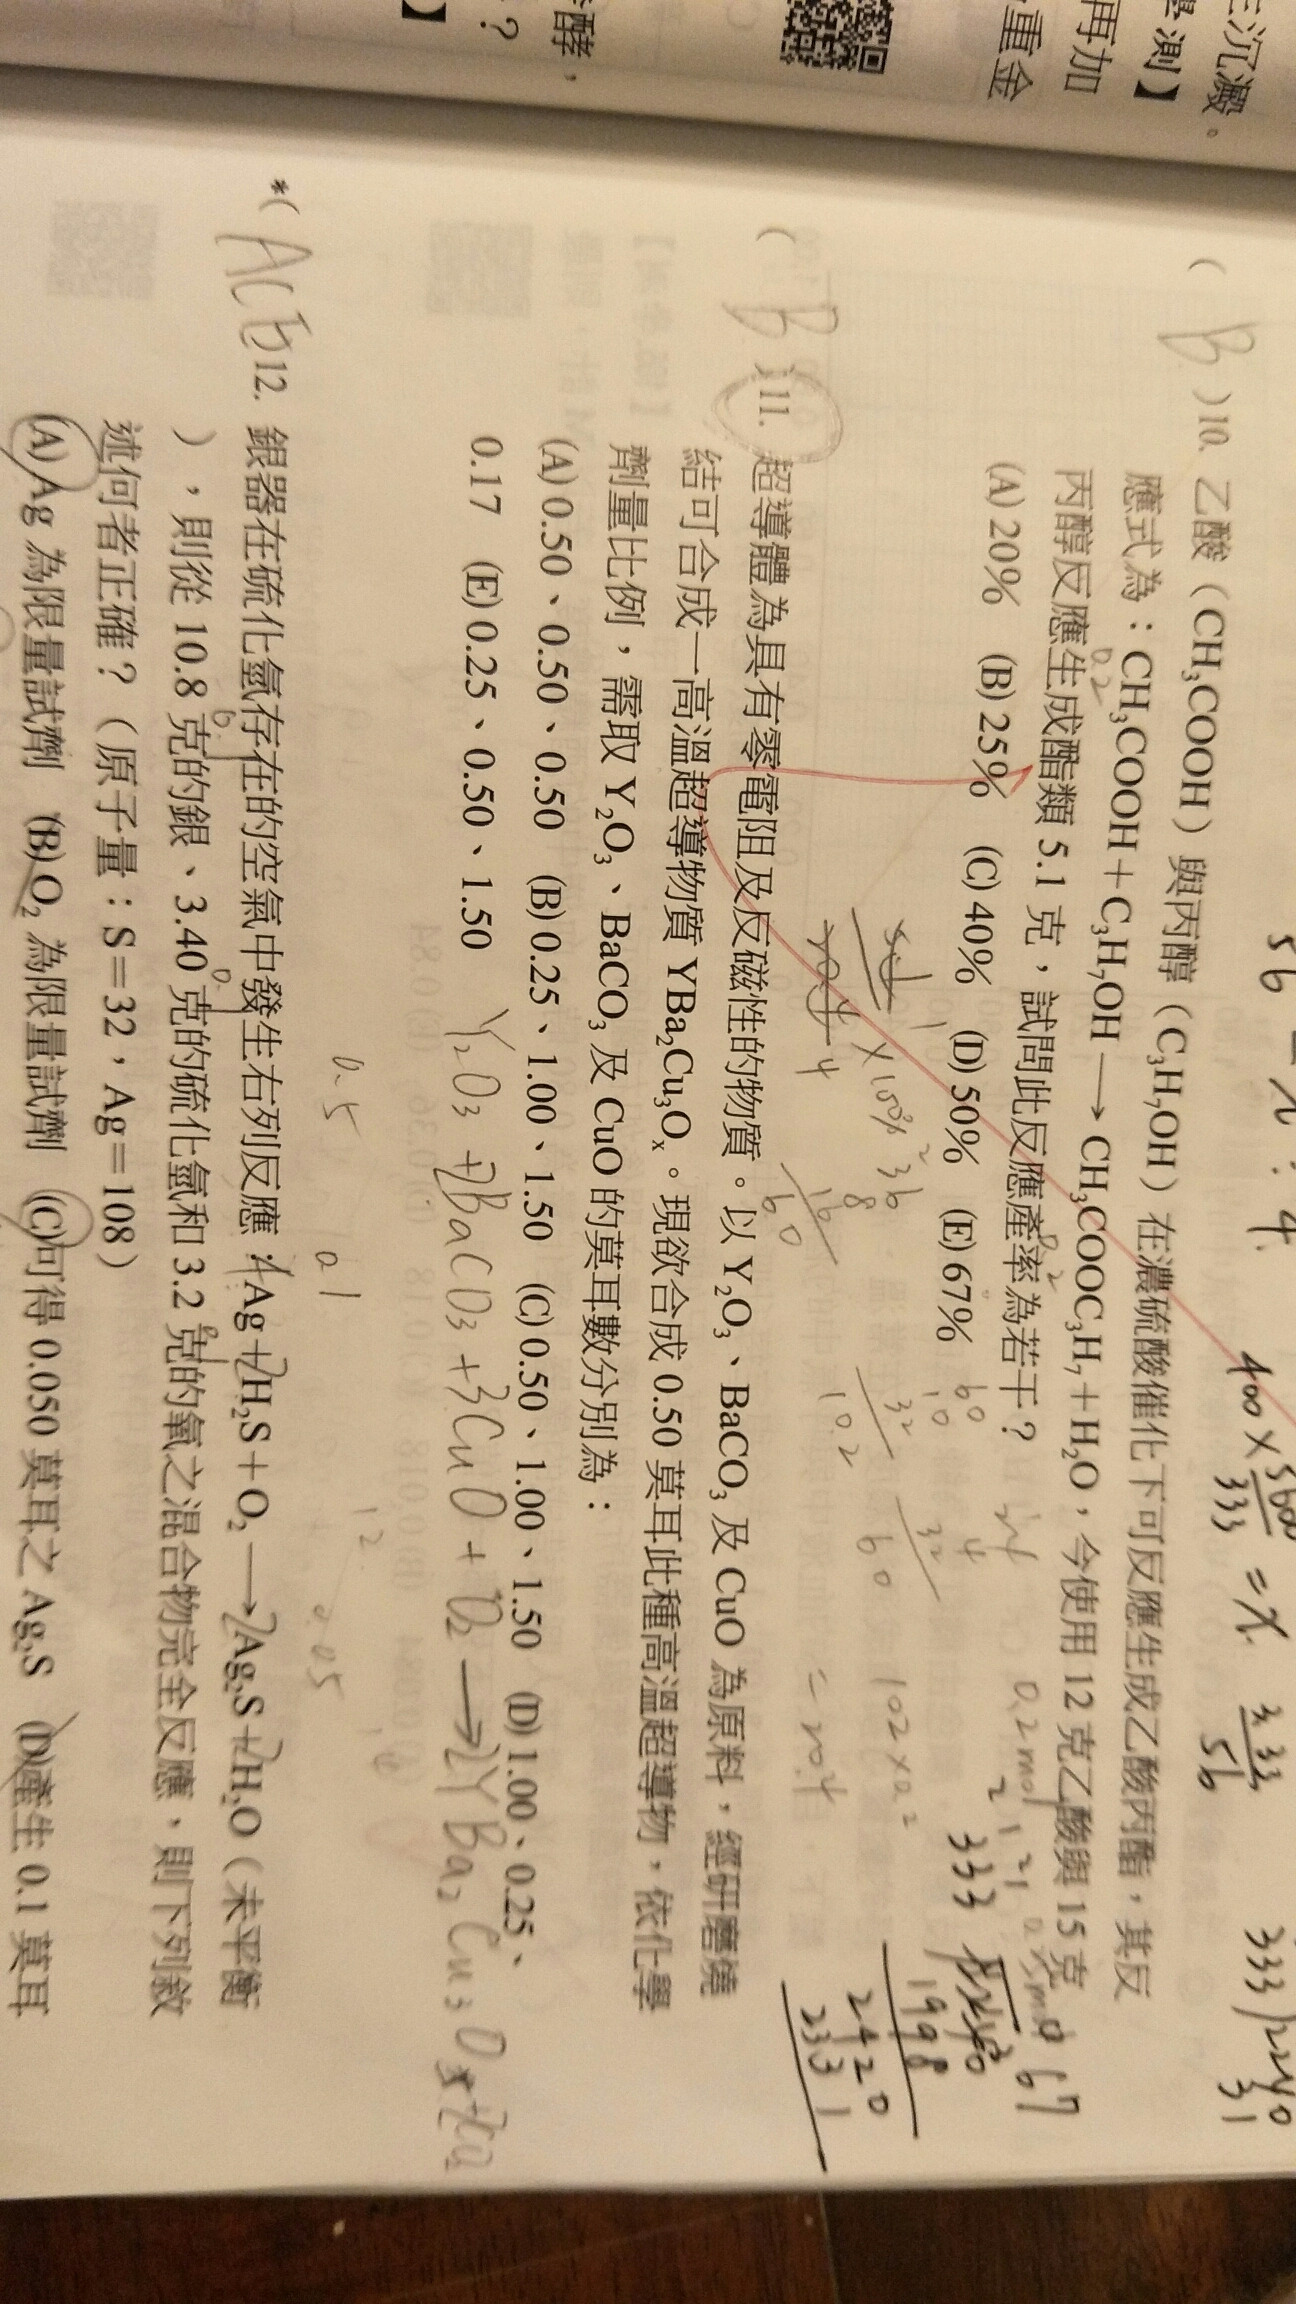 三沉澱。
學測】
再加
重金
酵，
？
】
56
400 × 5600/333 = x
3.33
56
333
2240
31
( B )10. 乙酸（CH₃COOH）與丙醇（C₃H₇OH）在濃硫酸催化下可反應生成乙酸丙酯，其反
應式為：CH₃COOH＋C₃H₇OH ⟶ CH₃COOC₃H₇＋H₂O，今使用 12 克乙酸與 15 克
丙醇反應生成酯類 5.1 克，試問此反應產率為若干？
(A) 20% (B) 25% (C) 40% (D) 50% (E) 67%
0.2mol
× 100%
102×0.2
= 20.4
333
1998
2420
2331
67
( B )11. 超導體為具有零電阻及反磁性的物質。以 Y₂O₃、BaCO₃ 及 CuO 為原料，經研磨燒
結可合成一高溫超導物質 YBa₂Cu₃Oₓ。現欲合成 0.50 莫耳此種高溫超導物，依化學
劑量比例，需取 Y₂O₃、BaCO₃ 及 CuO 的莫耳數分別為：
(A) 0.50、0.50、0.50 (B) 0.25、1.00、1.50 (C) 0.50、1.00、1.50 (D) 1.00、0.25、
0.17 (E) 0.25、0.50、1.50
Y₂O₃ + 2BaCO₃ + 3CuO + O₂ ⟶ 2YBa₂Cu₃O
0.5 0.1 12 0.05
*( 12. 銀器在硫化氫存在的空氣中發生右列反應：4Ag＋2H₂S＋O₂ ⟶ 2Ag₂S＋2H₂O（未平衡
），則從 10.8 克的銀、3.40 克的硫化氫和 3.2 克的氧之混合物完全反應，則下列敘
述何者正確？（原子量：S＝32，Ag＝108）
(A) Ag 為限量試劑 (B) O₂ 為限量試劑 (C)可得 0.050 莫耳之 Ag₂S (D)產生 0.1 莫耳